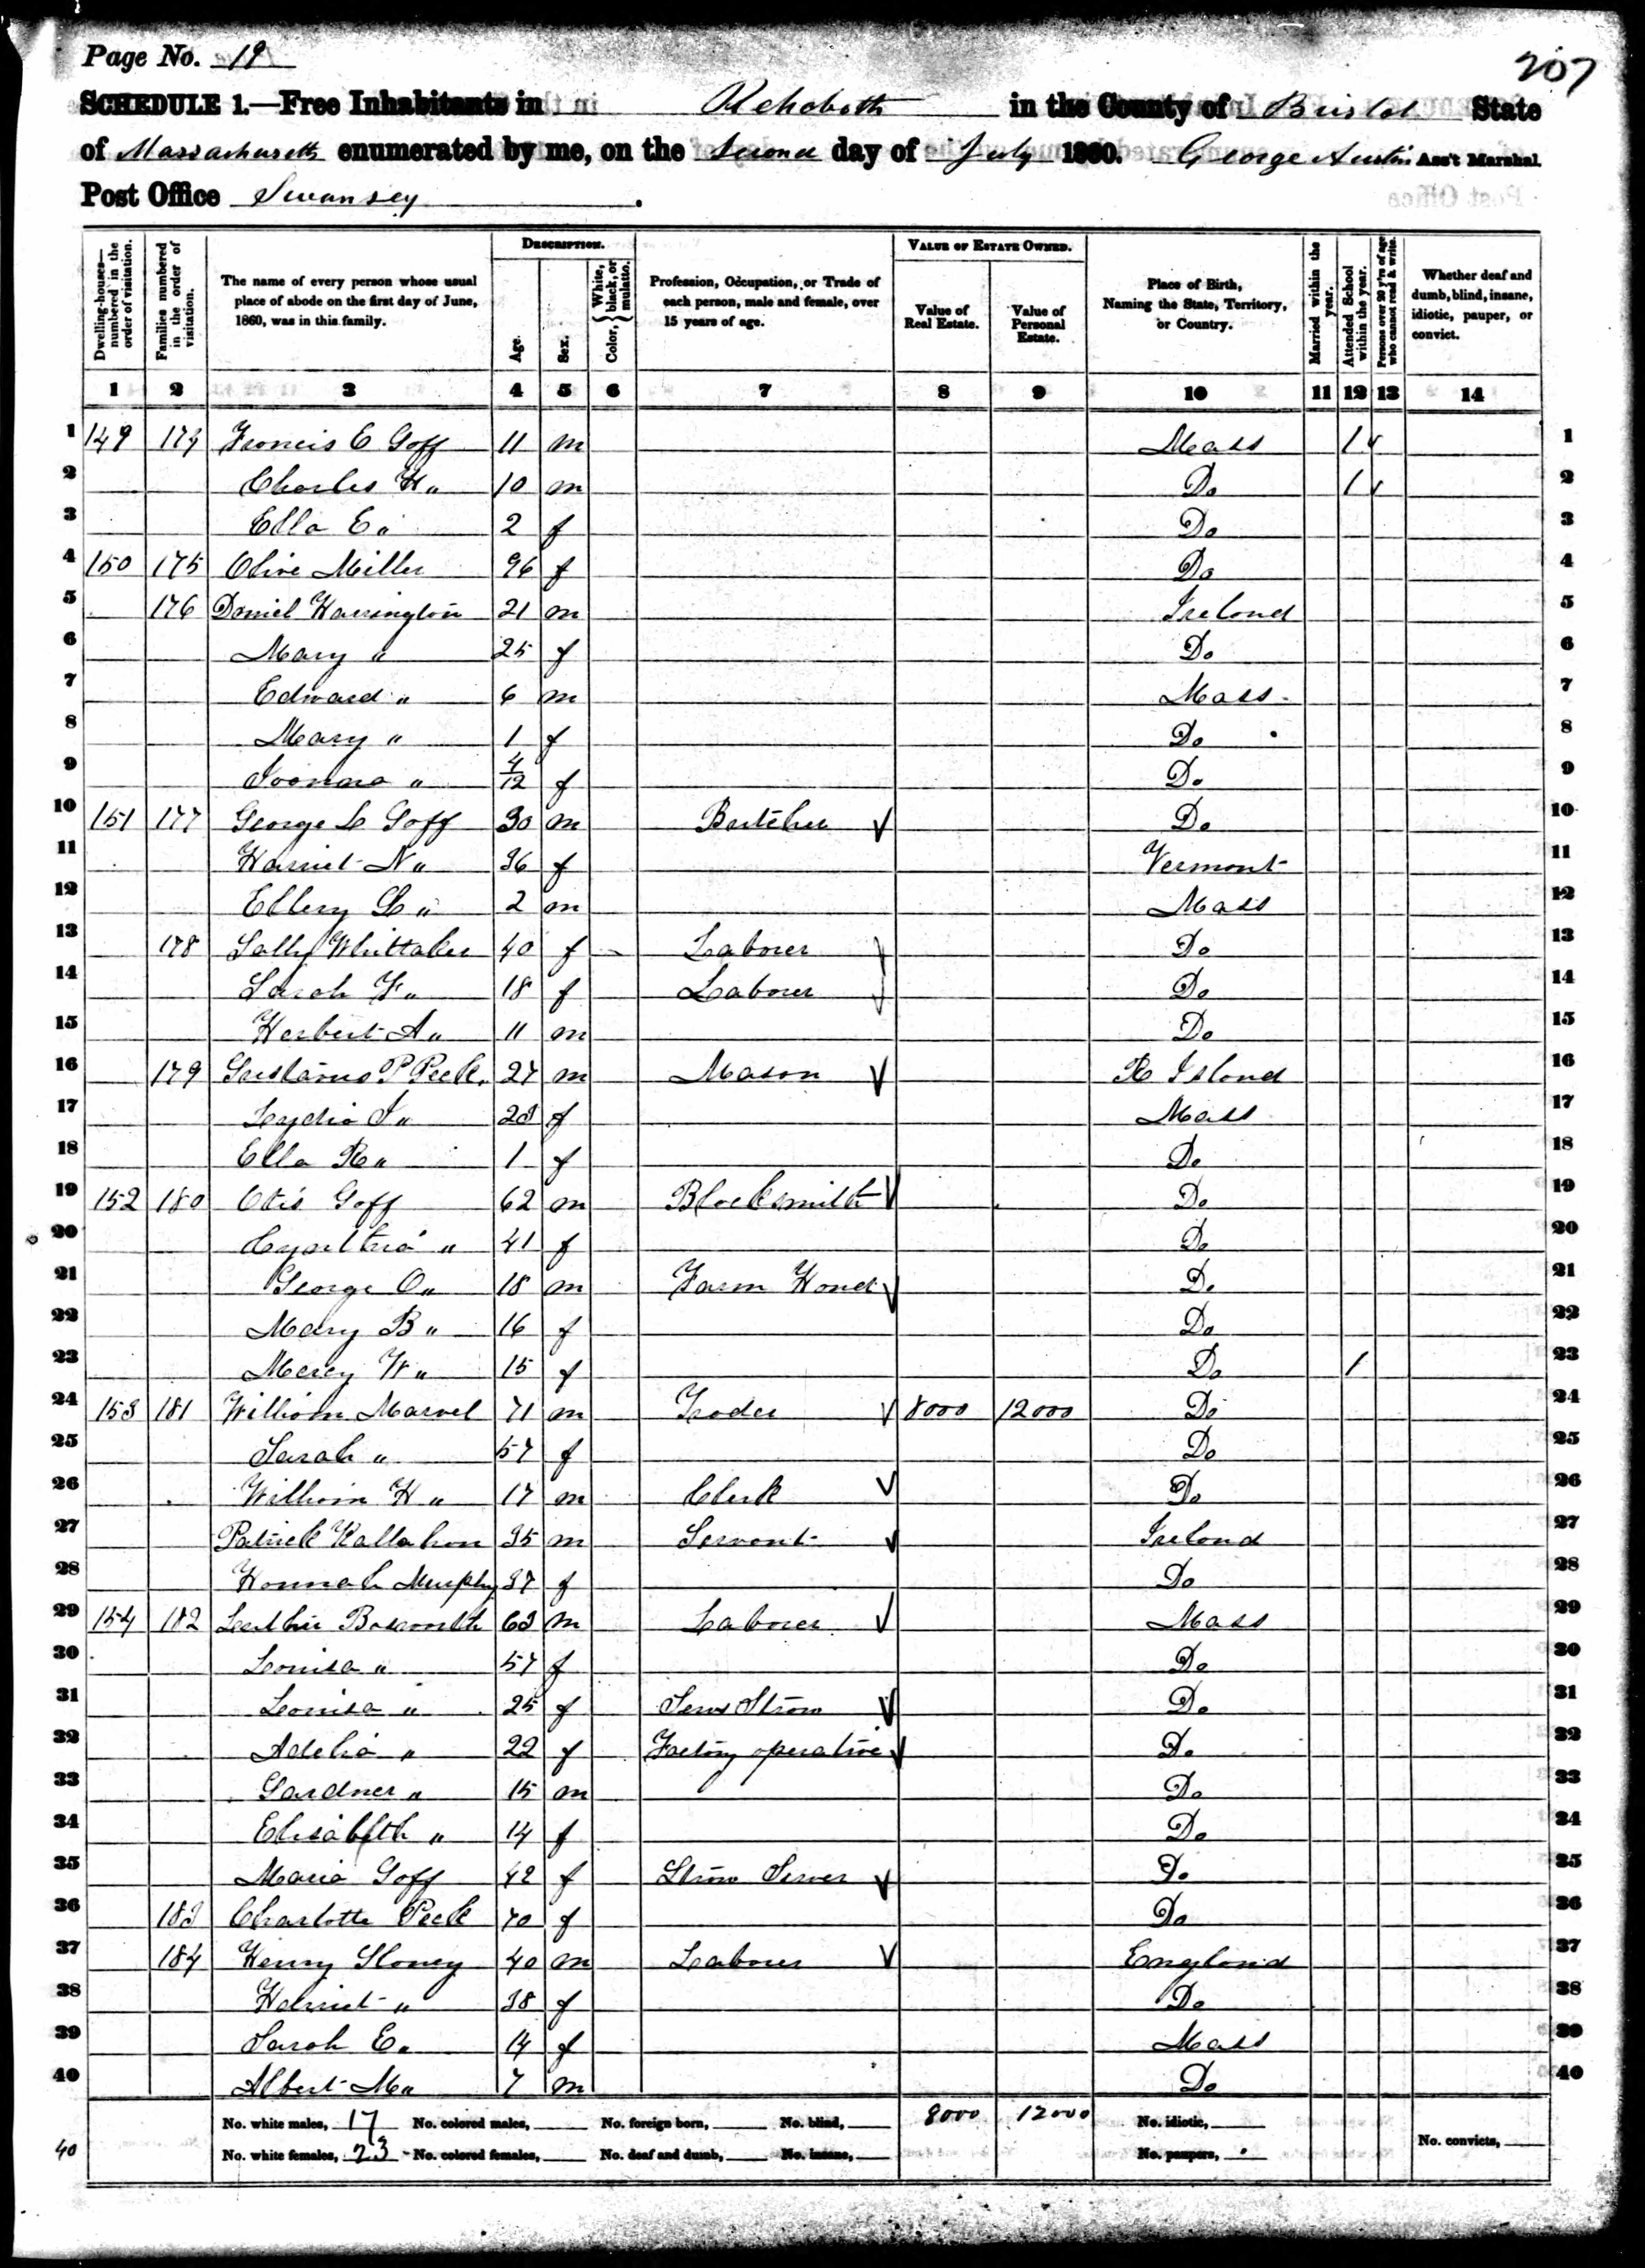 Page No. 19
207
SCHEDULE 1.—Free Inhabitants in Rehoboth in the County of Bristol State
of Massachusetts enumerated by me, on the Second day of July 1860. George Austin Ass't Marshal.
Post Office Swansey.
Dwelling-houses—numbered in the order of visitation.
Families numbered in the order of visitation.
The name of every person whose usual place of abode on the first day of June, 1860, was in this family.
DESCRIPTION.
Age.
Sex.
Color, { White, black, or mulatto.
Profession, Occupation, or Trade of each person, male and female, over 15 years of age.
VALUE OF ESTATE OWNED.
Value of Real Estate.
Value of Personal Estate.
Place of Birth, Naming the State, Territory, or Country.
Married within the year.
Attended School within the year.
Persons over 20 y'rs of age who cannot read & write.
Whether deaf and dumb, blind, insane, idiotic, pauper, or convict.
1 2 3 4 5 6 7 8 9 10 11 12 13 14
1 149 174 Francis E Goff 11 m Mass 1 1
2 Charles H " 10 m Do 1 2
3 Ella E " 2 f Do 3
4 150 175 Olive Miller 96 f Do 4
5 176 Daniel Harrington 21 m Ireland 5
6 Mary " 25 f Do 6
7 Edward " 6 m Mass 7
8 Mary " 1 f Do 8
9 Joanna " 4/12 f Do 9
10 151 177 George L Goff 30 m Butcher Do 10
11 Harriet N " 36 f Vermont 11
12 Ellery L " 2 m Mass 12
13 178 Sally Whittaker 40 f Laborer Do 13
14 Sarah F " 18 f Laborer Do 14
15 Herbert A " 11 m Do 15
16 179 Gustavus P Peck 27 m Mason R Island 16
17 Lydia J " 23 f Mass 17
18 Ella R " 1 f Do 18
19 152 180 Otis Goff 62 m Blacksmith Do 19
20 " 41 f Do 20
21 George O " 18 m Farm Hand Do 21
22 Mary B " 16 f Do 22
23 Mercy W " 15 f Do 1 23
24 153 181 William Marvel 71 m Trader 8000 12000 Do 24
25 Sarah " 57 f Do 25
26 William H " 17 m Clerk Do 26
27 Patrick Kallahan 35 m Servant Ireland 27
28 Hannah Murphy 37 f Do 28
29 154 182 Luther Bosworth 63 m Laborer Mass 29
30 Louisa " 57 f Do 30
31 Louisa " 25 f Sews Straw Do 31
32 Adelia " 22 f Factory operative Do 32
33 Gardner " 15 m Do 33
34 Elisabeth " 14 f Do 34
35 Maria Goff 42 f Straw Sewer Do 35
36 183 Charlotte Peck 70 f Do 36
37 184 Henry Sloney 40 m Laborer England 37
38 Harriet " 38 f Do 38
39 Sarah E " 14 f Mass 39
40 Albert M " 7 m Do 40
No. white males, 17 No. colored males, No. foreign born, No. blind, 8000 12000 No. idiotic,
40 No. white females, 23 No. colored females, No. deaf and dumb, No. insane, No. paupers, No. convicts,